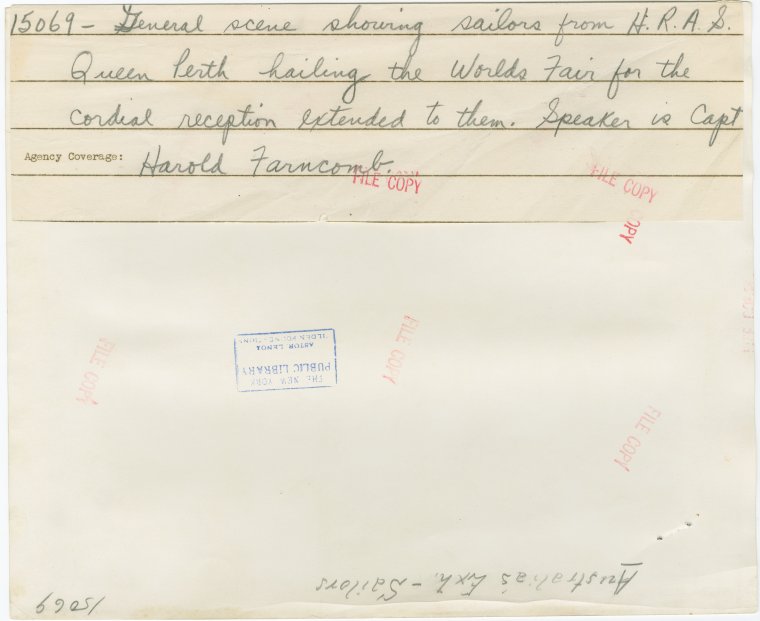 15069 - General scene showing sailors from H.R.A.S.
Queen Perth hailing the Worlds Fair for the
cordial reception extended to them. Speaker is Capt
Agency Coverage: Harold Farncomb.
FILE COPY
FILE COPY
COPY
FILE COPY
FILE COPY
FILE COPY
THE NEW YORK
PUBLIC LIBRARY
ASTOR LENOX
TILDEN FOUNDATIONS
Australia's Exh. - Sailors
15069